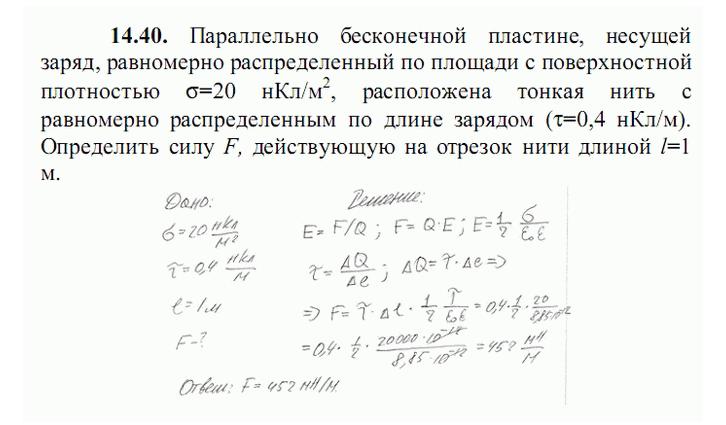 14.40. Параллельно бесконечной пластине, несущей
заряд, равномерно распределенный по площади с поверхностной
плотностью σ=20 нКл/м², расположена тонкая нить с
равномерно распределенным по длине зарядом (τ=0,4 нКл/м).
Определить силу F, действующую на отрезок нити длиной l=1
м.
Дано:
σ=20 нКл/м²
τ=0,4 нКл/м
l=1м
F-?
Решение:
E= F/Q ; F= Q·E ; E= 1/2 σ/ε₀ε
τ= ΔQ/Δl ; ΔQ= τ·Δl =>
=> F= τ·Δl · 1/2 τ/ε₀ε = 0,4· 1/2 · 20/8,85·10⁻¹²
=0,4· 1/2 · 20000·10⁻¹²/8,85·10⁻¹² = 452 мН/м
Ответ: F= 452 мН/м.